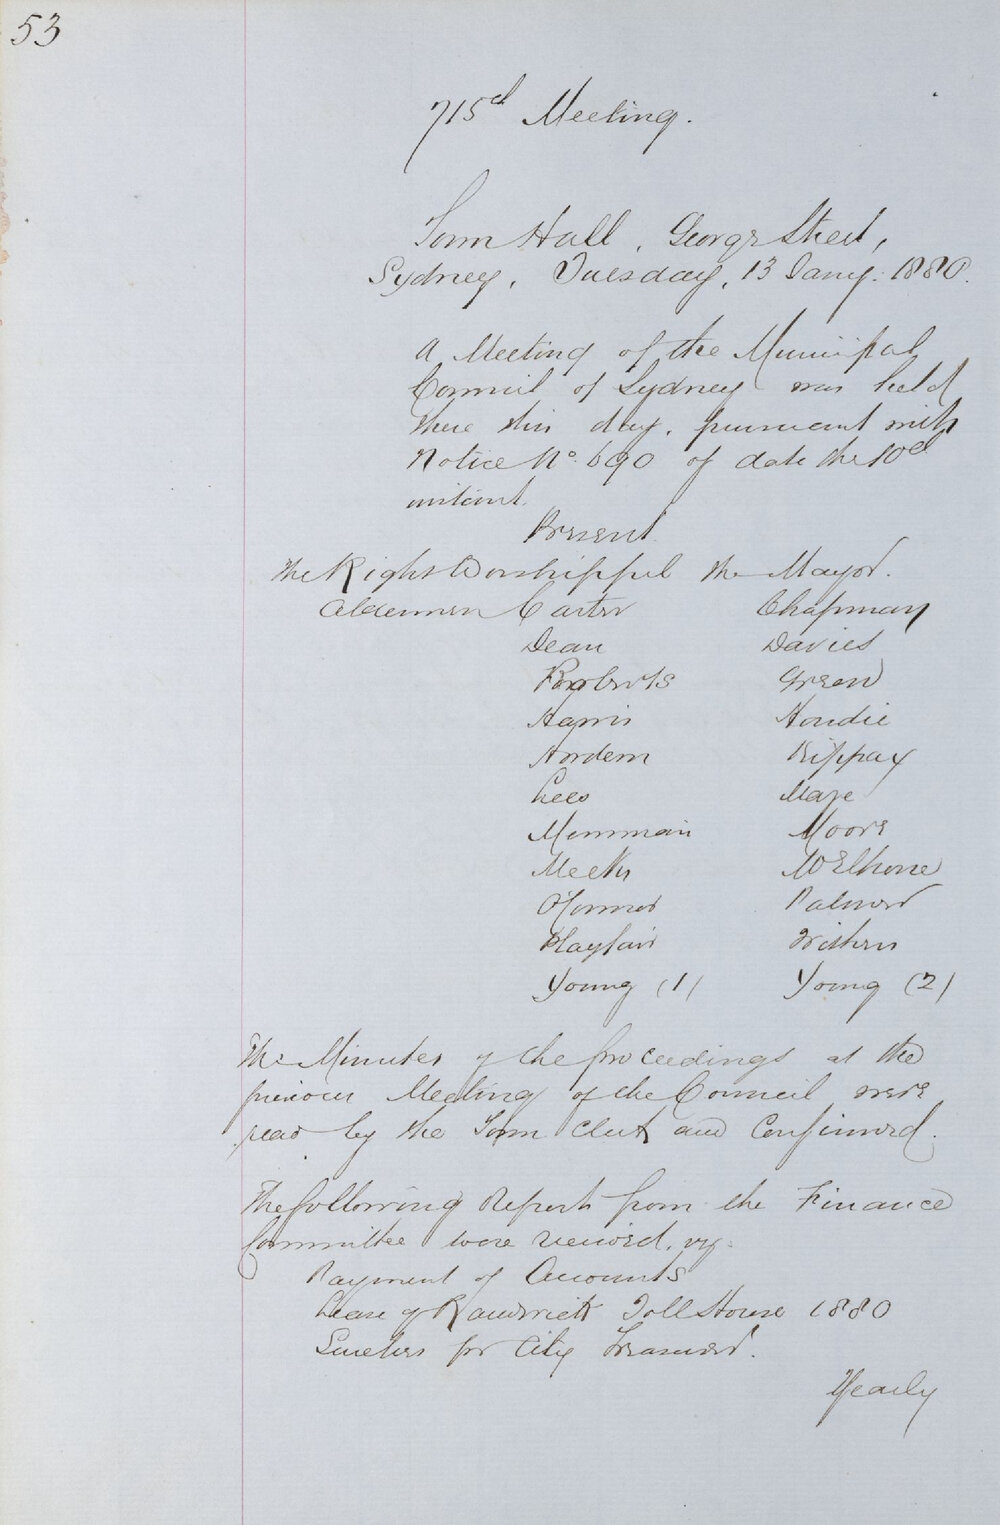 53
715th Meeting.
Town Hall, George Street,
Sydney, Tuesday, 13 Jany. 1880.
A Meeting of the Municipal
Council of Sydney was held
there this day, pursuant with
Notice No. 690 of date the 10th
instant.
Present
The Right Worshipful the Mayor.
Aldermen Carter Chapman
Dean Davies
Roberts Green
Harris Hardie
Hordern Kippax
Lees Maze
Merriman Moore
Meeks McElhone
O'Connor Palmer
Playfair Withers
Young (1) Young (2)
The Minutes of the proceedings at the
previous Meeting of the Council were
read by the Town Clerk and Confirmed.
The following Reports from the Finance
Committee were received, viz:
Payment of Accounts
Lease of Randwick Toll House 1880
Sureties for City Treasurer.
Yearly